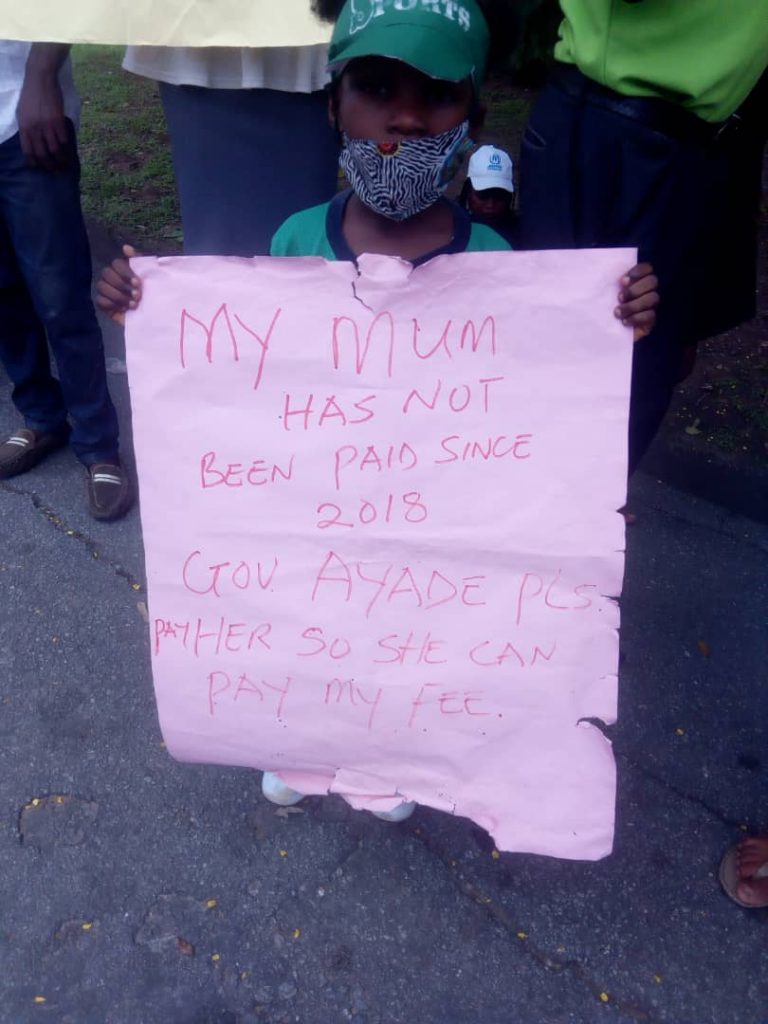 SPORTS
MY MUM
HAS NOT
BEEN PAID SINCE
2018
GOV. AYADE PLS.
PAY HER SO SHE CAN
PAY MY FEE.